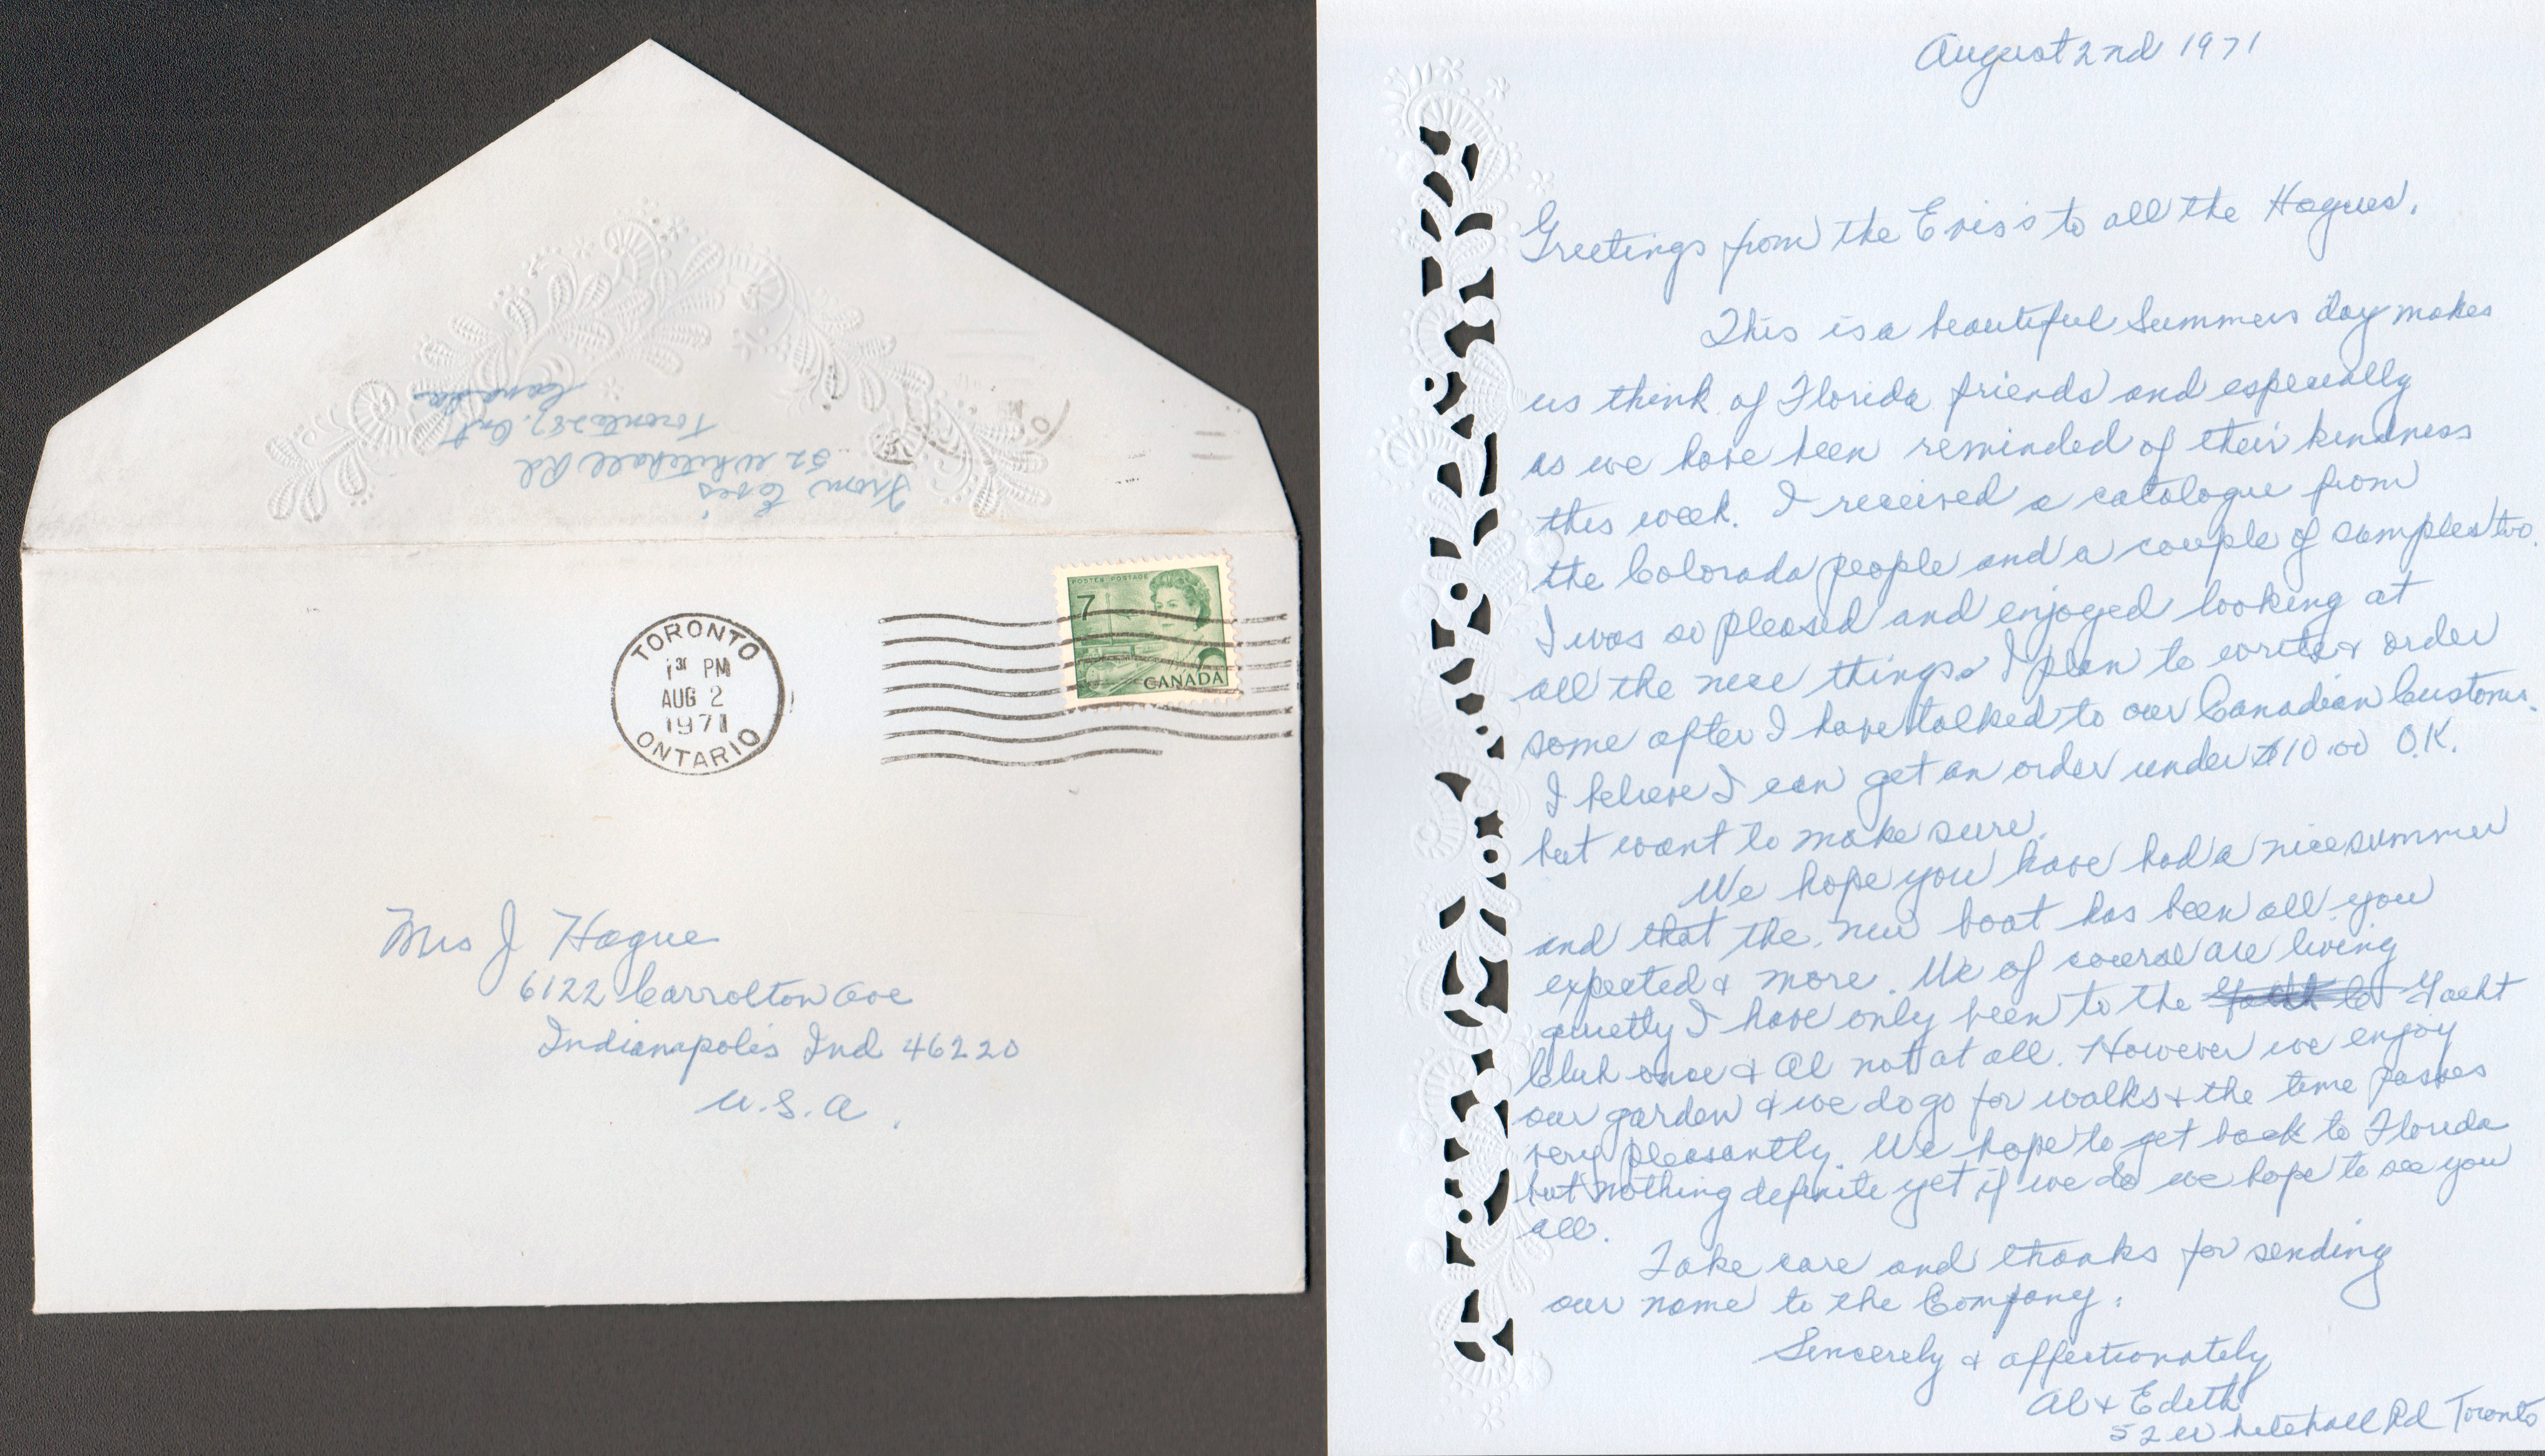 From Evis
52 Whitehall Rd
Toronto 287, Ont
Canada
POSTES POSTAGE
7
CANADA
TORONTO
1 30 PM
AUG 2
1971
ONTARIO
Mrs J Hague
6122 Carrolton Ave
Indianapolis Ind 46220
U.S.A.
August 2nd 1971
Greetings from the Evis's to all the Hagues.
This is a beautiful Summers day makes
us think of Florida friends and especially
as we have been reminded of their kindness
this week. I received a catalogue from
the Colorado people and a couple of samples two.
I was so pleased and enjoyed looking at
all the nice things. I plan to write & order
some after I have talked to our Canadian Customs.
I believe I can get an order under $10.00 O.K.
but want to make sure.
We hope you have had a nice summer
and that the new boat has been all you
expected & more. We of course are living
quietly I have only been to the Yacht
Club once & Al not at all. However we enjoy
our garden & we do go for walks & the time passes
very pleasantly. We hope to get back to Florida
but nothing definite yet if we do we hope to see you
all.
Take care and thanks for sending
our name to the Company.
Sincerely & affectionately
Al & Edith
52 Whitehall Rd Toronto